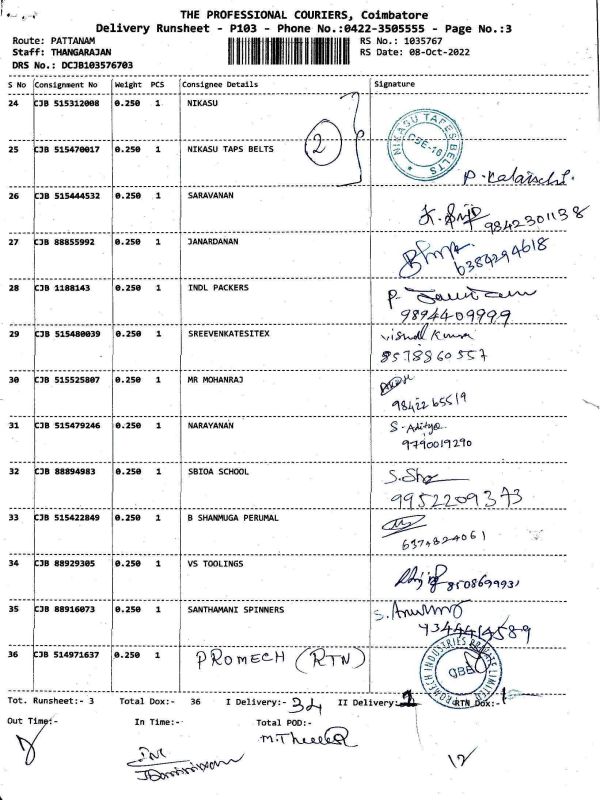 THE PROFESSIONAL COURIERS, Coimbatore
Delivery Runsheet - P103 - Phone No.:0422-3505555 - Page No.:3
Route: PATTANAM RS No.: 1035767
Staff: THANGARAJAN RS Date: 08-Oct-2022
DRS No.: DCJB103576703
S No Consignment No Weight PCS Consignee Details Signature
24 CJB 515312008 0.250 1 NIKASU
2
NIKASU TAPES BELTS CBE-16
25 CJB 515470017 0.250 1 NIKASU TAPS BELTS
26 CJB 515444532 0.250 1 SARAVANAN
9842301138
27 CJB 88855992 0.250 1 JANARDANAN
6384294618
28 CJB 1188143 0.250 1 INDL PACKERS
9894409999
29 CJB 515480039 0.250 1 SREEVENKATESITEX
8578860557
30 CJB 515525807 0.250 1 MR MOHANRAJ
9842265519
31 CJB 515479246 0.250 1 NARAYANAN S. Aditya
9790019290
32 CJB 88894983 0.250 1 SBIOA SCHOOL
9952209373
33 CJB 515422849 0.250 1 B SHANMUGA PERUMAL
6374824061
34 CJB 88929305 0.250 1 VS TOOLINGS
35 CJB 88916073 0.250 1 SANTHAMANI SPINNERS
36 CJB 514971637 0.250 1 PROMECH (RTN)
PROMECH INDUSTRIES PRIVATE LIMITED CBE
Tot. Runsheet:- 3 Total Dox:- 36 I Delivery:- 34 II Delivery:- RTN Dox:- 1
Out Time:- In Time:- Total POD:-
12